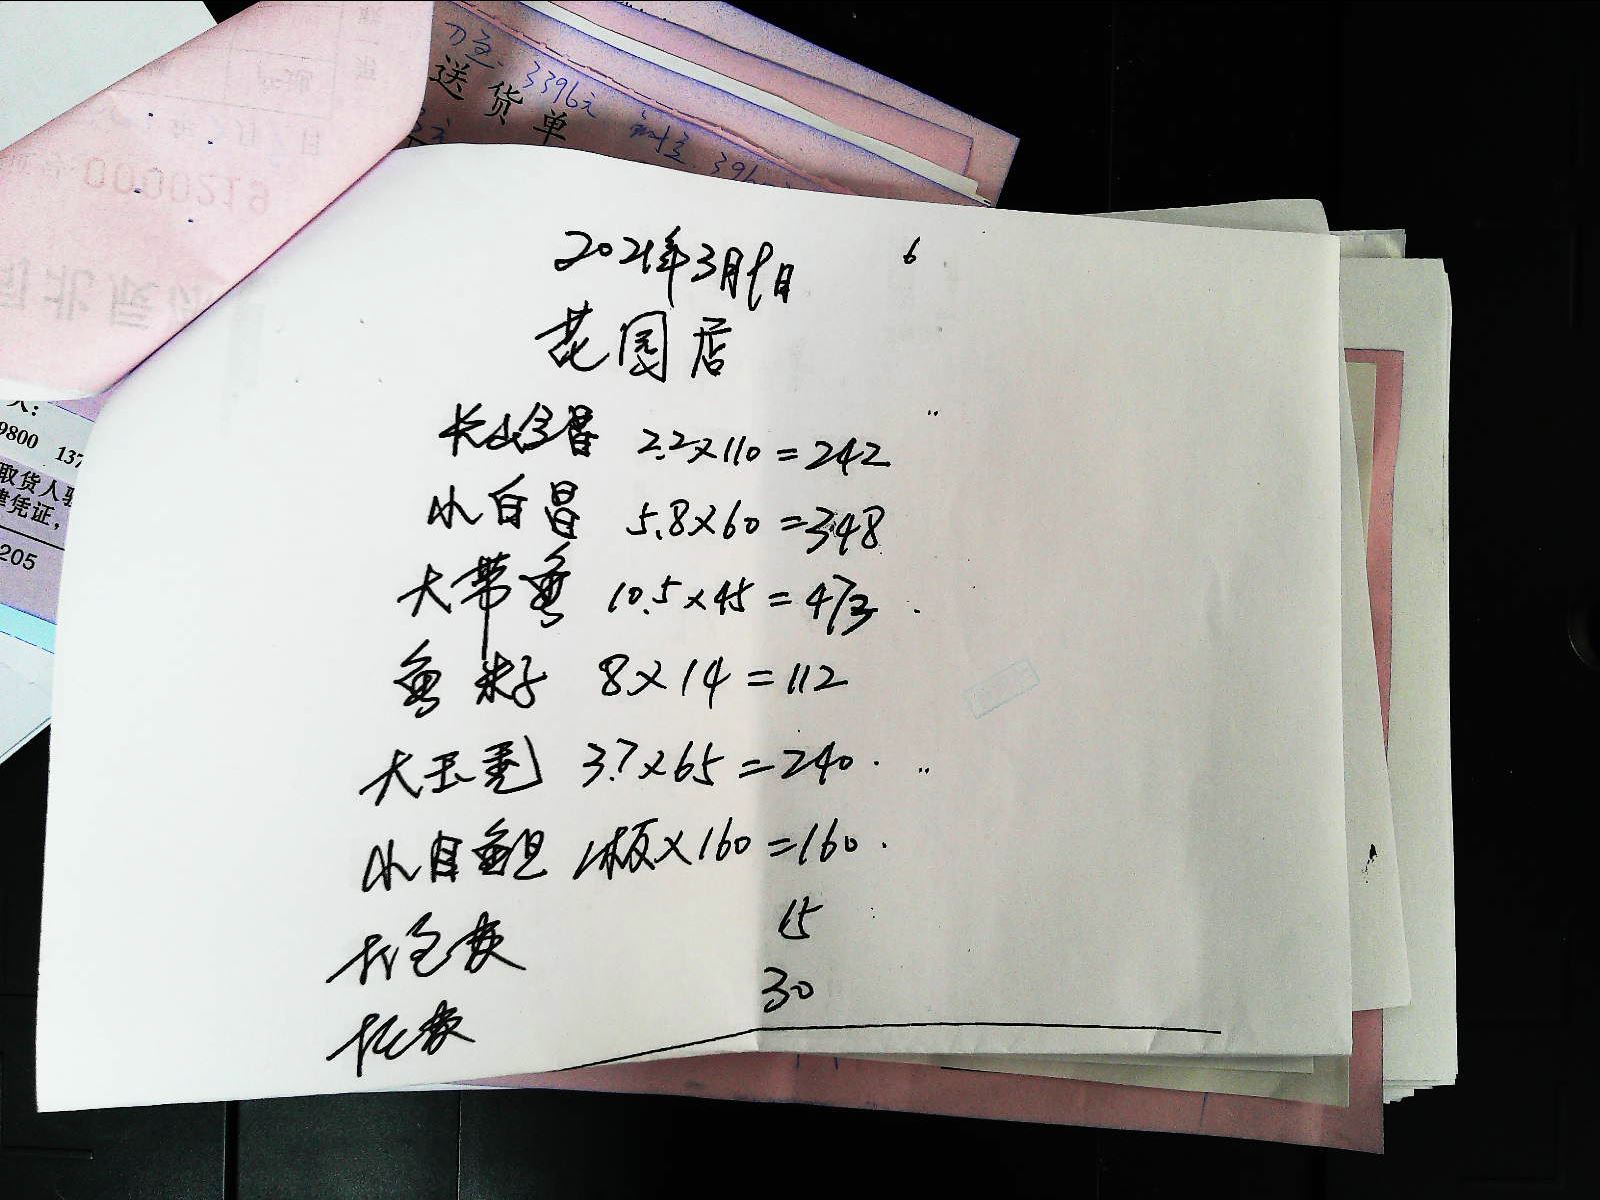 送货单
3396元
0000219
人:
9800 137
取货人
凭证,
205
2021年3月9日
6
花园店
2.2×110=242
小白昌 5.8×60=348
大带鱼 10.5×45=473
鱼籽 8×14=112
大玉秃 3.7×65=240
小目鱼旦 1板×160=160
打包费 15
托费 30